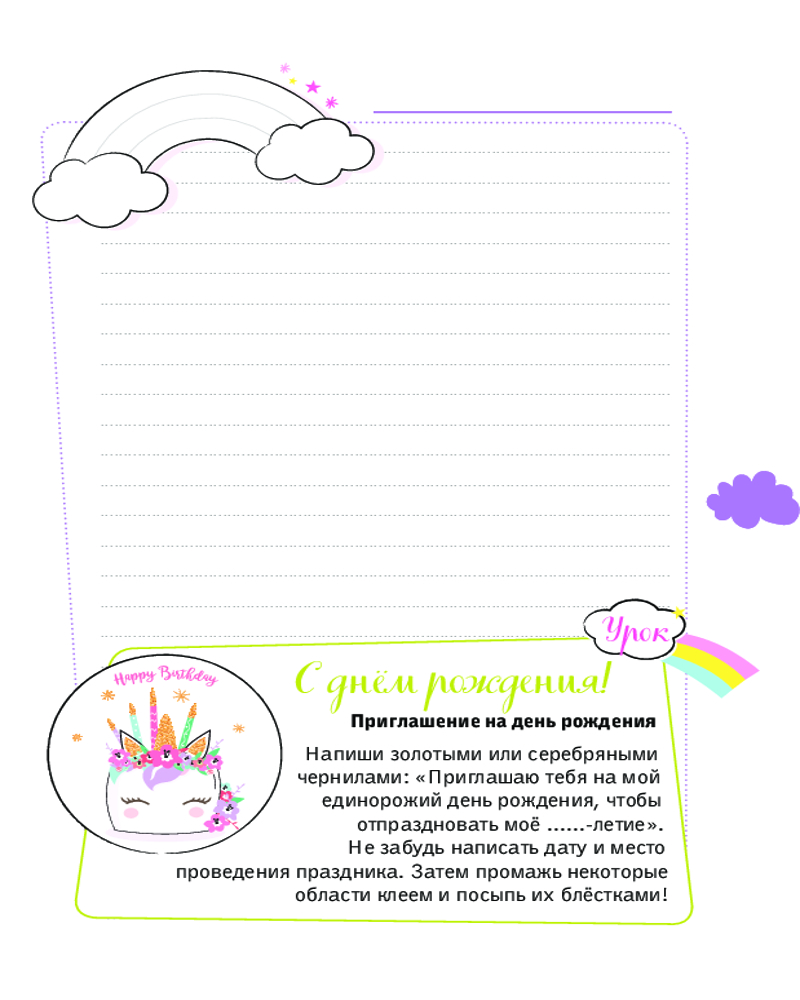 Урок
Happy Birthday
С днём рождения!
Приглашение на день рождения
Напиши золотыми или серебряными
чернилами: «Приглашаю тебя на мой
единорожий день рождения, чтобы
отпраздновать моё ......-летие».
Не забудь написать дату и место
проведения праздника. Затем промажь некоторые
области клеем и посыпь их блёстками!